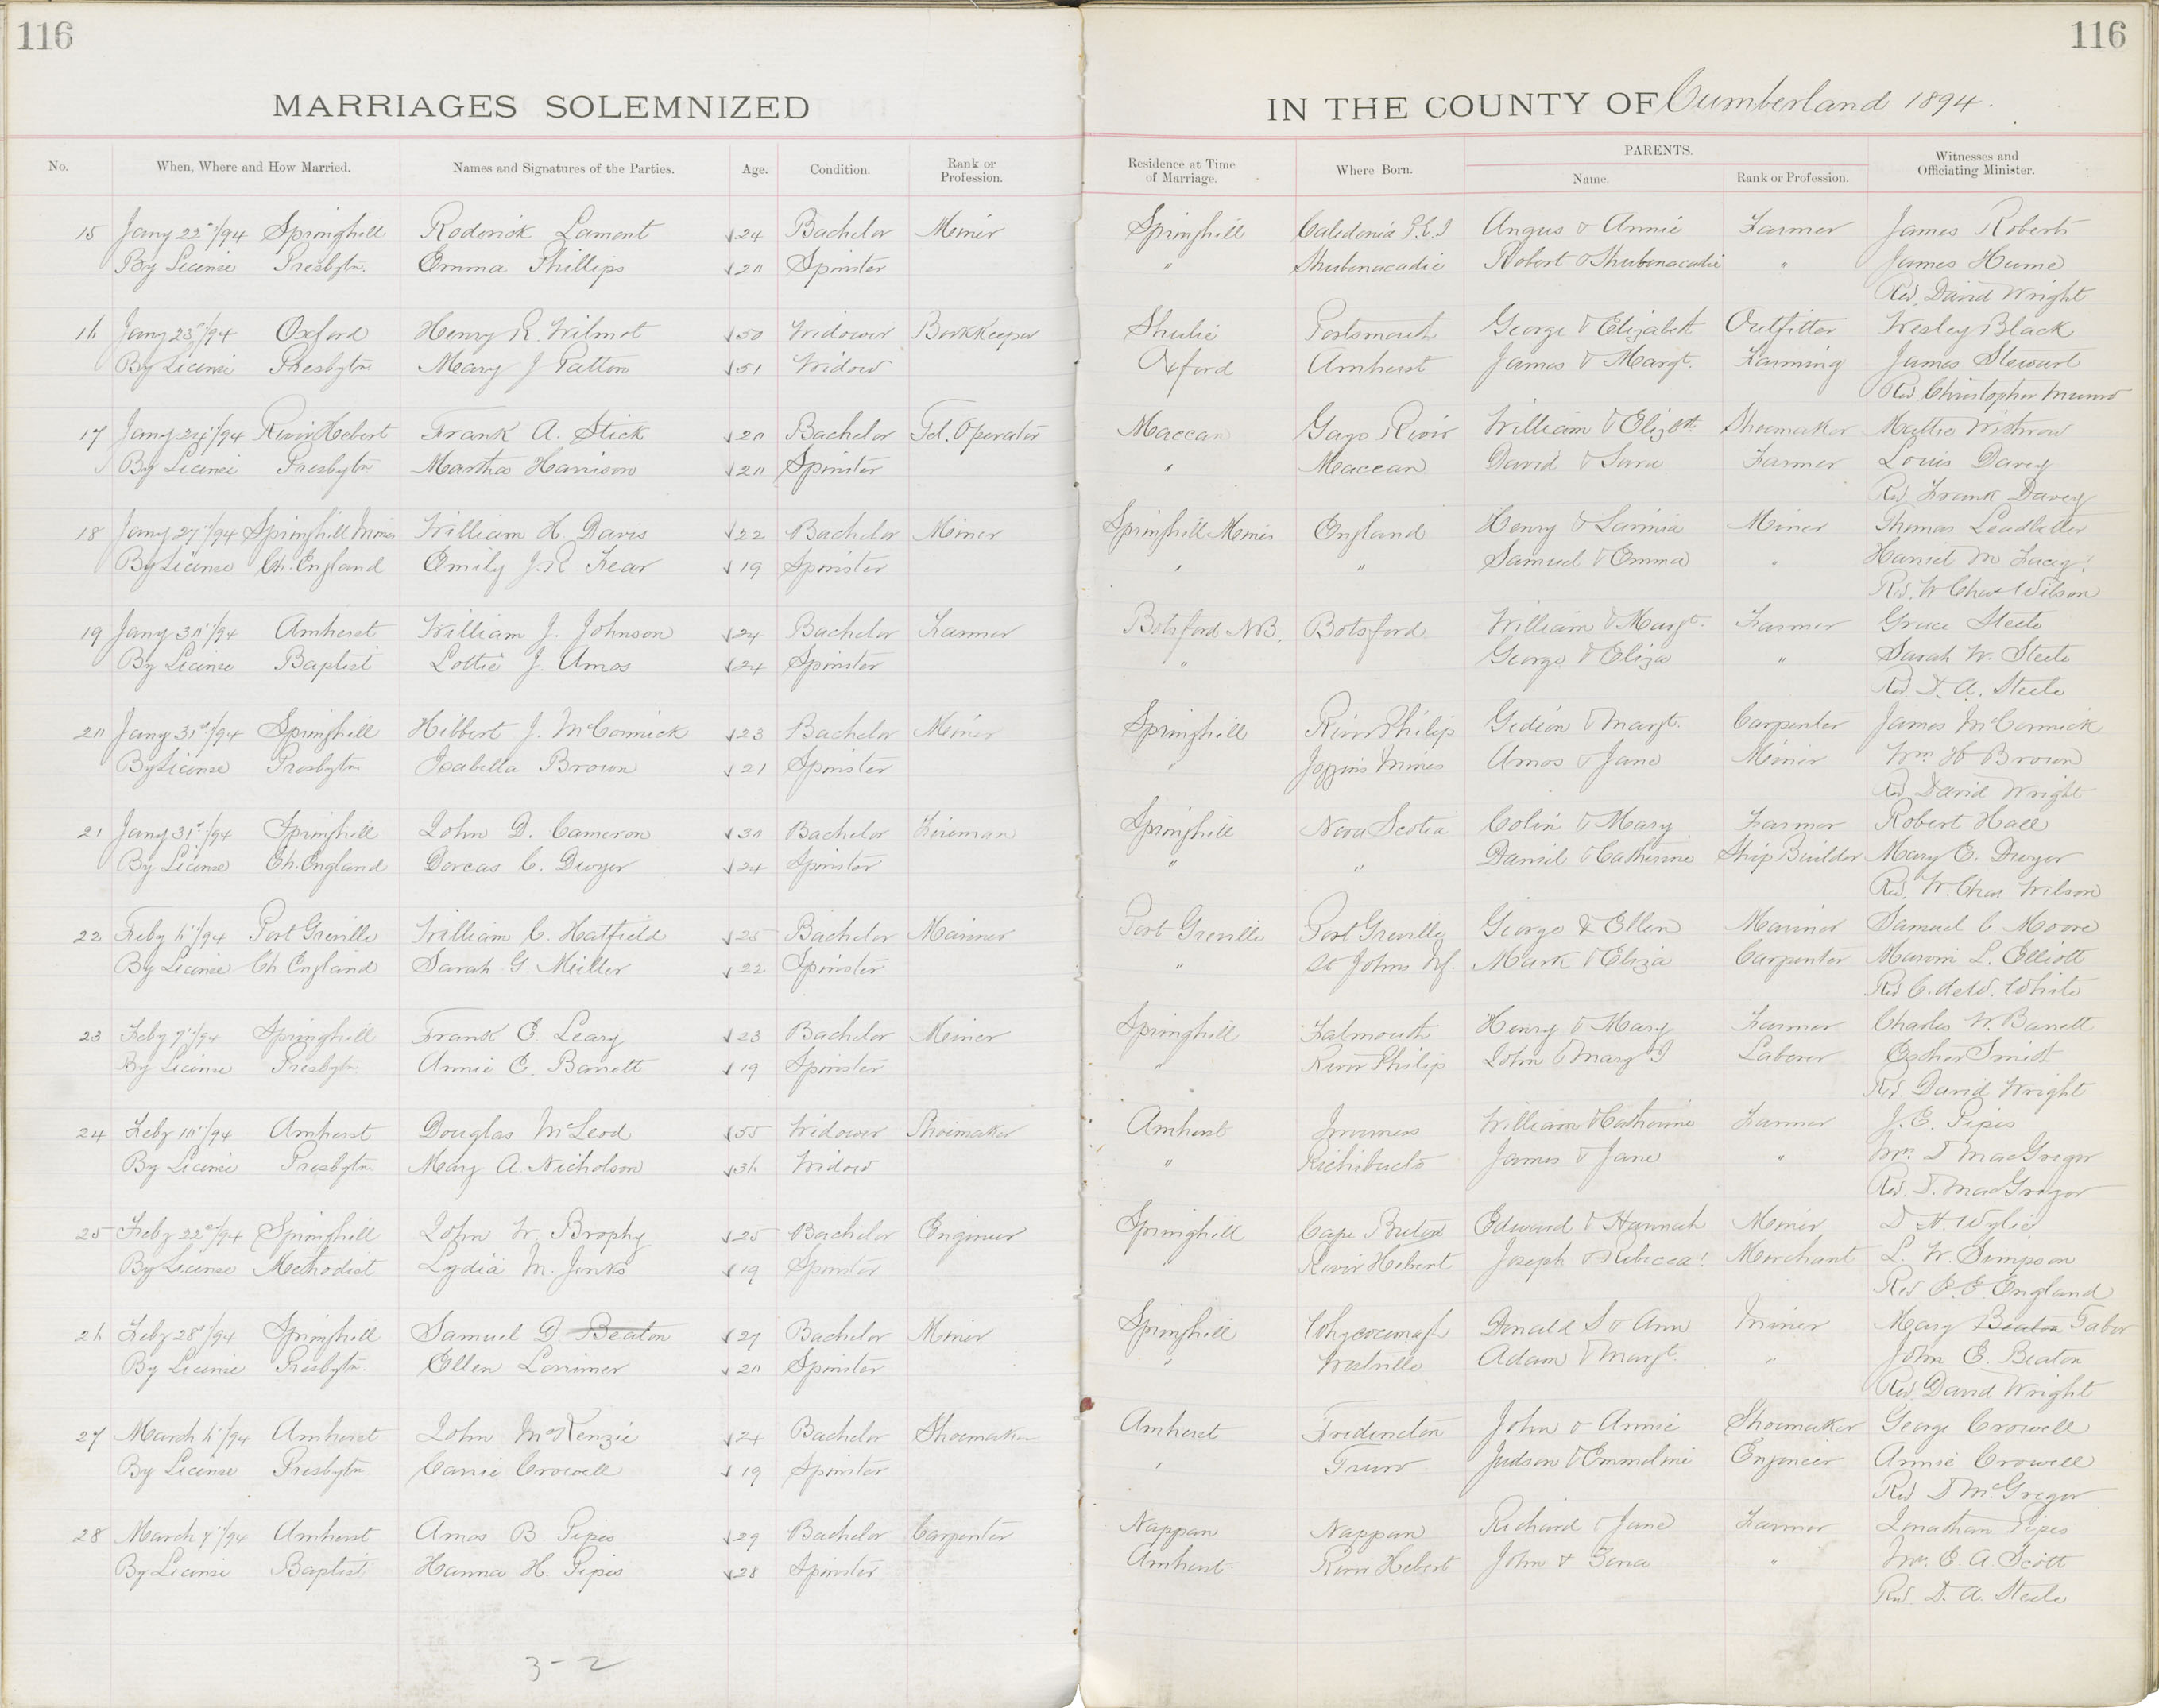 116 116
MARRIAGES SOLEMNIZED IN THE COUNTY OF Cumberland 1894.
No. When, Where and How Married. Names and Signatures of the Parties. Age. Condition. Rank or Profession. Residence at Time of Marriage. Where Born. PARENTS. Name. Rank or Profession. Witnesses and Officiating Minister.
15 Jany 22nd/94 Springhill Roderick Lamont 24 Bachelor Miner Springhill Caledonia P.E.I Angus & Annie Farmer James Roberts
By License Presbytn. Emma Phillips 20 Spinster " Shubenacadie Robert & Shubenacadie " James Hume
Rev. David Wright
16 Jany 23rd/94 Oxford Henry R. Wilmot 50 Widower BookKeeper Shulie Portsmouth George & Elizabeth Outfitter Wesley Black
By License Presbytn Mary J Patton 51 Widow Oxford Amherst James & Margt. Farming James Stewart
Rev. Christopher Munro
17 Jany 24th/94 River Hebert Frank A. Stick 20 Bachelor Tel. Operator Maccan Gays River William & Elizbth Shoemaker Mattie Withrow
By License Presbytn Martha Harrison 20 Spinster " Maccan David & Sara Farmer Louis Davey
Rev. Frank Davey
18 Jany 27th/94 Springhill Mines William H. Davis 22 Bachelor Miner Springhill Mines England Henry & Lavinia Miner Thomas Leadbetter
By License Ch. England Emily J.R. Fear 19 Spinster " " Samuel & Emma " Haniel M Lacey
Rev. W Chas Wilson
19 Jany 30th/94 Amherst William J. Johnson 24 Bachelor Farmer Botsford N.B. Botsford William & Margt. Farmer Grace Steele
By License Baptist Lottie J. Amos 24 Spinster " George & Eliza " Sarah W. Steele
Rev. D. A. Steele
20 Jany 31st/94 Springhill Hibbert J. McCormick 23 Bachelor Miner Springhill River Philip Gideon & Margt. Carpenter James McCormick
By License Presbytn Isabella Brown 21 Spinster " Joggins Mines Amos & Jane Miner Wm. H Brown
Rev. David Wright
21 Jany 31st/94 Springhill John D. Cameron 30 Bachelor Fireman Springhill Nova Scotia Colin & Mary Farmer Robert Hall
By License Ch. England Dorcas C. Dwyer 24 Spinster " " Daniel & Catherine Ship Builder Mary E. Dwyer
Rev. W. Chas. Wilson
22 Feby 6th/94 Port Greville William C. Hatfield 25 Bachelor Mariner Port Greville Port Greville George & Ellen Mariner Samuel C. Moore
By License Ch. England Sarah G. Miller 22 Spinster " St Johns Nf. Mark & Eliza Carpenter L. Elliott
Rev C. deW. White
23 Feby 7th/94 Springhill Frank E. Leary 23 Bachelor Miner Springhill Falmouth Henry & Mary Farmer Charles W. Barrett
By License Presbytn Annie E. Barrett 19 Spinster " River Philip John & Mary J Laborer Esther Smith
Rev. David Wright
24 Feby 10th/94 Amherst Douglas McLeod 55 Widower Shoemaker Amherst Inverness William & Catherine Farmer J. E. Pipes
By License Presbytn. Mary A. Nicholson 36 Widow " Richibucto James & Jane " Mrs. D MacGregor
Rev. D. MacGregor
25 Feby 22nd/94 Springhill John W. Brophy 25 Bachelor Engineer Springhill Cape Breton Edward & Hannah Miner D H. Wylie
By License Methodist Lydia M. Jenks 19 Spinster " River Hebert Joseph & Rebecca Merchant L. W. Simpson
Rev E. E England
26 Feby 28th/94 Springhill Samuel D. Beaton 27 Bachelor Miner Springhill Donald S & Ann Miner Mary Beaton Tabor
By License Presbytn. Ellen Lorrimer 20 Spinster " Westville Adam & Margt. " John E. Beaton
Rev. David Wright
27 March 6th/94 Amherst John McKenzie 24 Bachelor Shoemaker Amherst Fredericton John & Annie Shoemaker George Crowell
By License Presbytn. Carrie Crowell 19 Spinster " Truro Judson & Emmeline Engineer Annie Crowell
Rev D McGregor
28 March 7th/94 Amherst Amos B. Pipes 29 Bachelor Carpenter Nappan Nappan Richard & Jane Farmer Jonathan Pipes
By License Baptist Hanna H. Pipes 28 Spinster Amherst River Hebert John & " Mrs. E. A. Scott
Rev. D. A. Steele
3-2